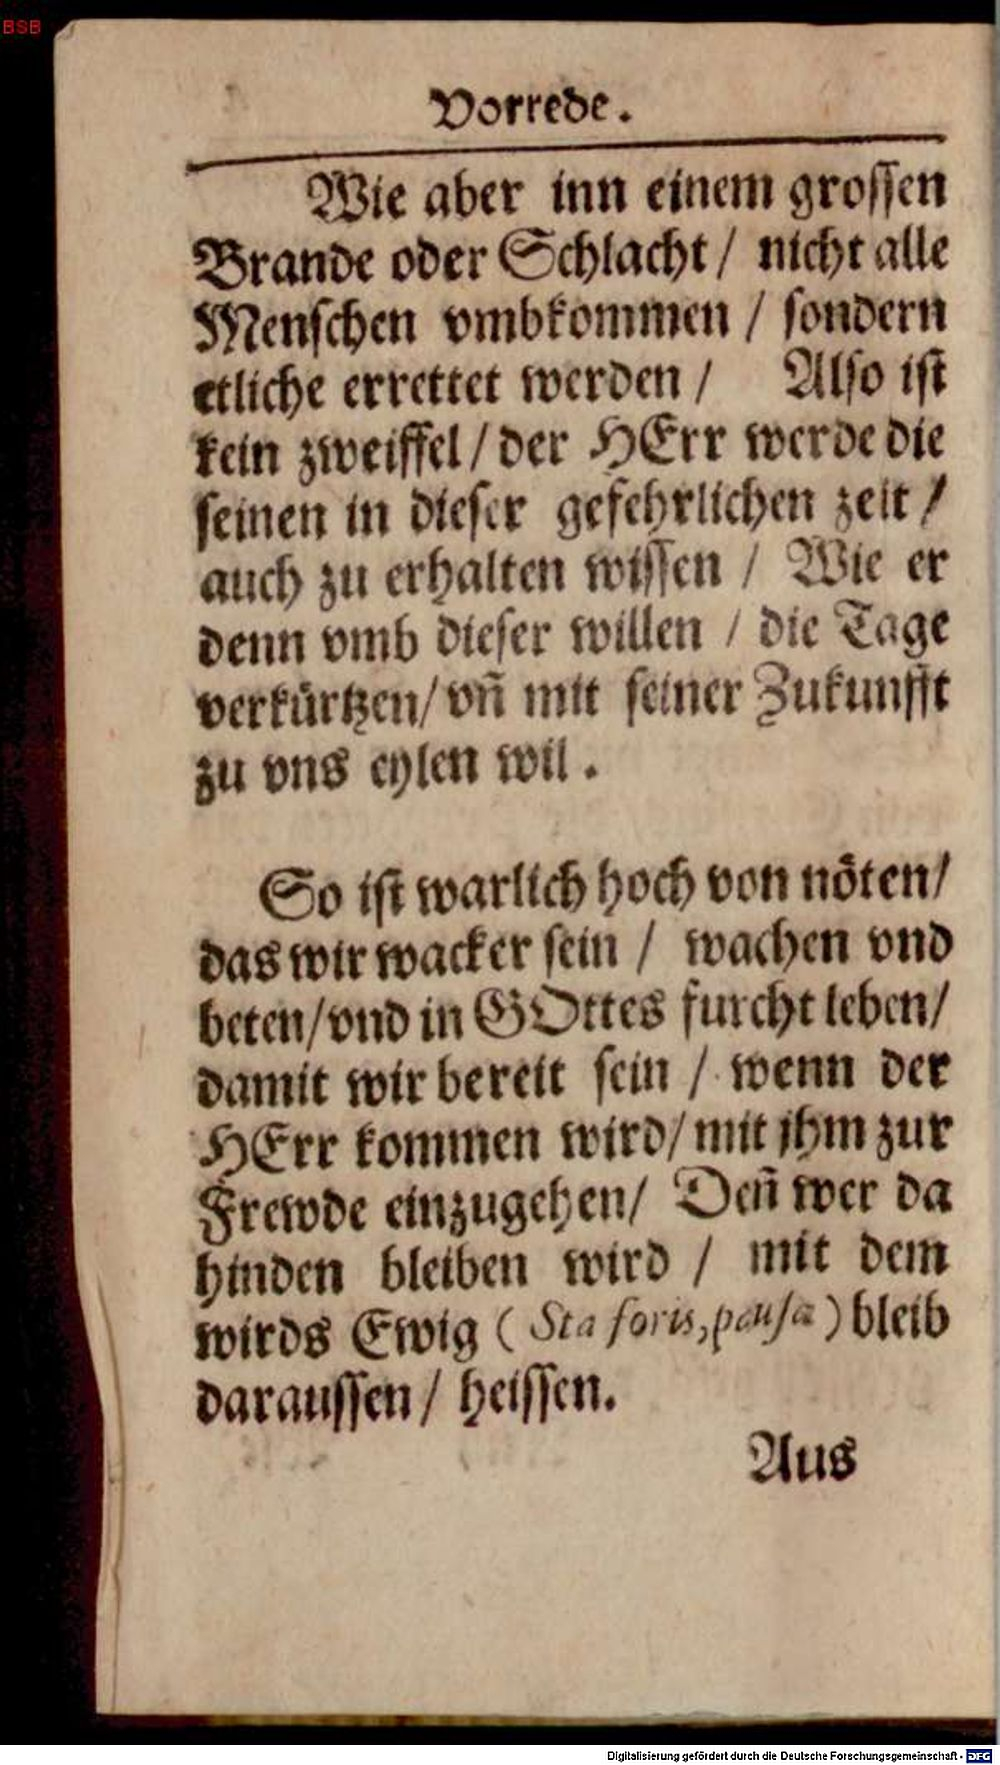 BSB
Vorrede.
Wie aber inn einem grossen
Brande oder Schlacht / nicht alle
Menschen vmbkommen / sondern
etliche errettet werden / Also ist
kein zweiffel / der HErr werde die
seinen in dieser gefehrlichen zeit /
auch zu erhalten wissen / Wie er
denn vmb dieser willen / die Tage
verkürtzen / vñ mit seiner Zukunfft
zu vns eylen wil.
So ist warlich hoch von nöten /
das wir wacker sein / wachen vnd
beten / vnd in GOttes furcht leben /
damit wir bereit sein / wenn der
HErr kommen wird / mit jhm zur
Frewde einzugehen / Deñ wer da
hinden bleiben wird / mit dem
wirds Ewig ( Sta foris, pausa ) bleib
daraussen / heissen.
Aus
Digitalisierung gefördert durch die Deutsche Forschungsgemeinschaft - DFG